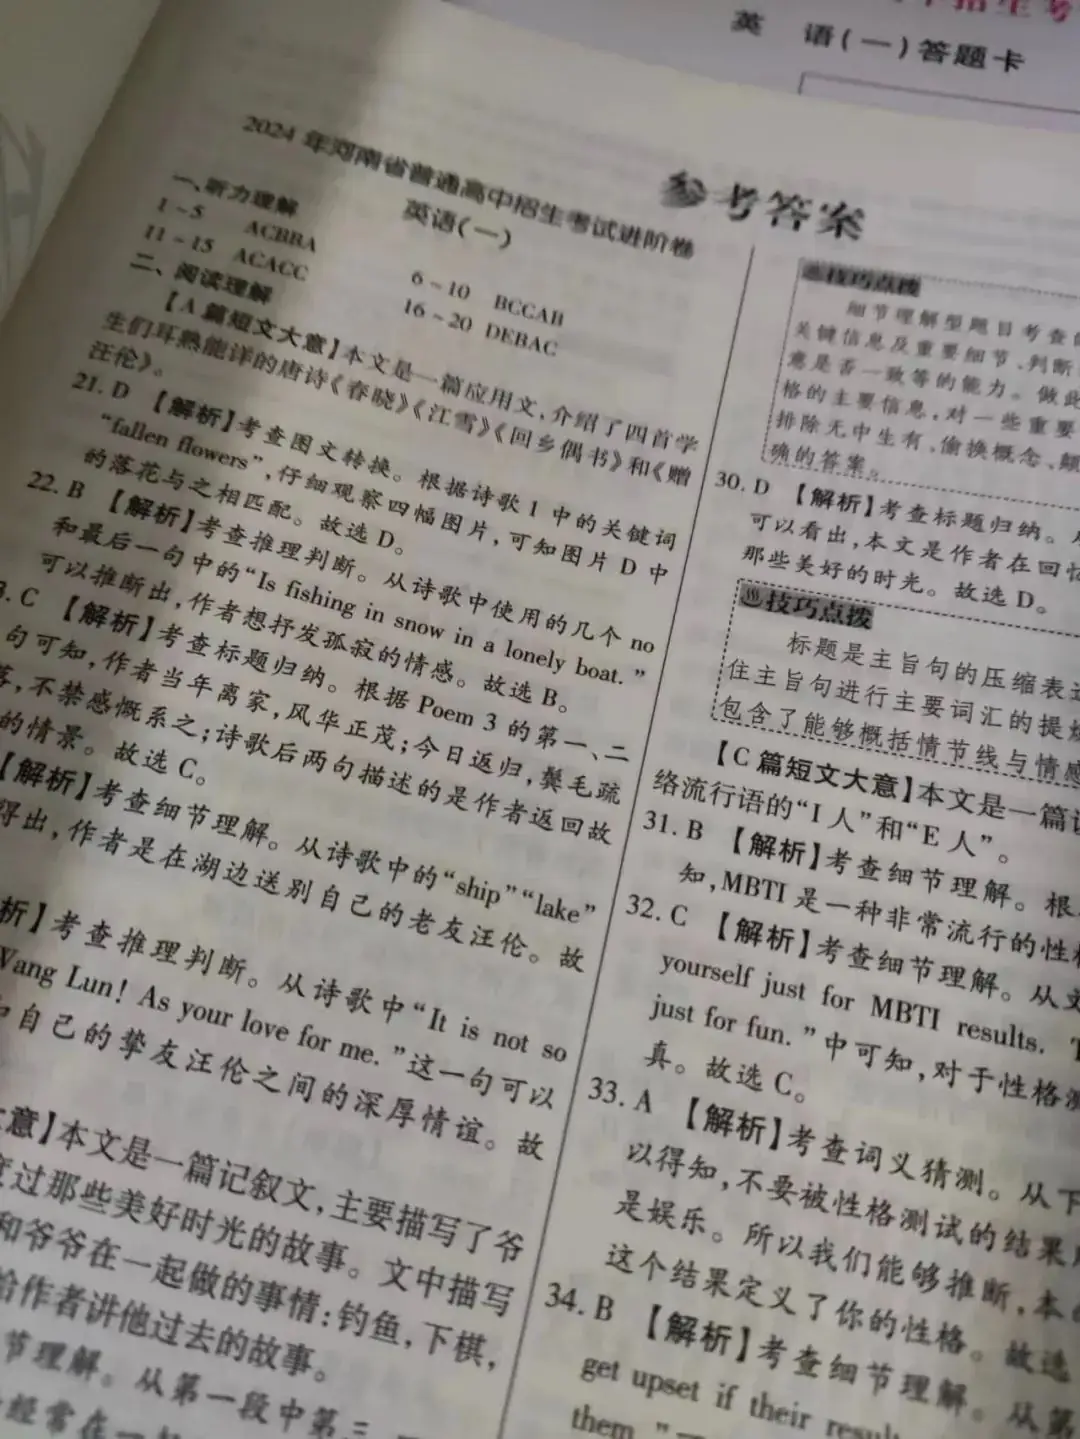 招生考
英 语(一)答题卡
参考答案
2024 年河南省普通高中招生考试进阶卷
英语(一)
一、听力理解
1~5 ACBBA 6~10 BCCAB
11~15 ACACC 16~20 DEBAC
二、阅读理解
【A 篇短文大意】本文是一篇应用文,介绍了四首学
生们耳熟能详的唐诗《春晓》《江雪》《回乡偶书》和《赠
汪伦》。
21. D 【解析】考查图文转换。根据诗歌 1 中的关键词
“fallen flowers”,仔细观察四幅图片,可知图片 D 中
的落花与之相匹配。故选 D。
22. B 【解析】考查推理判断。从诗歌中使用的几个 no
和最后一句中的“Is fishing in snow in a lonely boat.”
可以推断出,作者想抒发孤寂的情感。故选 B。
3. C 【解析】考查标题归纳。根据 Poem 3 的第一、二
句可知,作者当年离家,风华正茂;今日返归,鬓毛疏
落,不禁感慨系之;诗歌后两句描述的是作者返回故
的情景。故选 C。
【解析】考查细节理解。从诗歌中的“ship”“lake”
得出,作者是在湖边送别自己的老友汪伦。故
析】考查推理判断。从诗歌中“It is not so
Wang Lun! As your love for me.”这一句可以
自己的挚友汪伦之间的深厚情谊。故
意】本文是一篇记叙文,主要描写了爷
度过那些美好时光的故事。文中描写
和爷爷在一起做的事情:钓鱼,下棋,
给作者讲他过去的故事。
节理解。从第一段中第三
经常在一起
技巧点拨
细节理解型题目考查
关键信息及重要细节、判断
意是否一致等的能力。做此
格的主要信息,对一些重要
排除无中生有、偷换概念、颠
确的答案。
30. D 【解析】考查标题归纳。
可以看出,本文是作者在回忆
那些美好的时光。故选 D。
技巧点拨
标题是主旨句的压缩表达
住主旨句进行主要词汇的提炼
包含了能够概括情节线与情感
【C 篇短文大意】本文是一篇
络流行语的“I 人”和“E 人”。
31. B 【解析】考查细节理解。根
知,MBTI 是一种非常流行的性格
32. C 【解析】考查细节理解。从文
yourself just for MBTI results.
just for fun.”中可知,对于性格测
真。故选 C。
33. A 【解析】考查词义猜测。从下
以得知,不要被性格测试的结果
是娱乐。所以我们能够推断,本
这个结果定义了你的性格。故选
34. B 【解析】考查细节理解。从第
get upset if their results
them